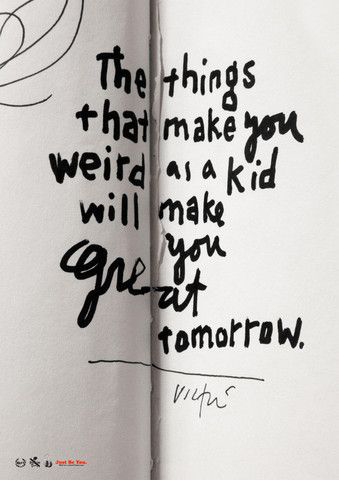 The things
that make you
weird as a kid
will make
you
great
tomorrow.
Just Be You.